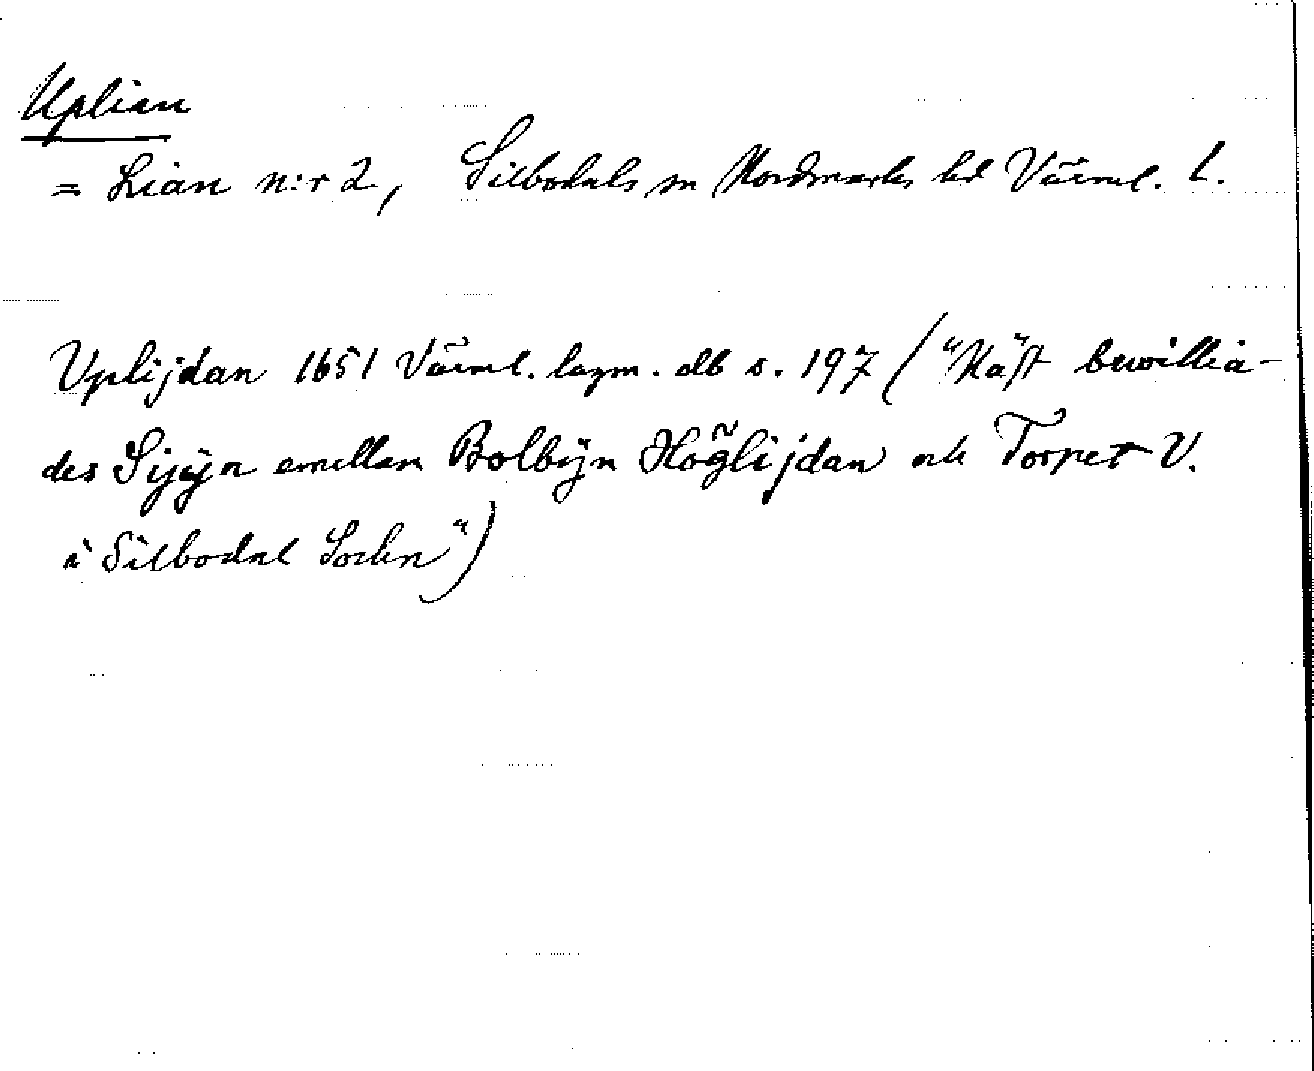 Uplian
= Lian n:r 2, Silbodals sn Nordmarks hd Värml. l.
Uplijdan 1651 Värml. lagm. db s. 197 ("Näst bewillia-
des Sijÿn emellan Bolbÿn Höglijdan och Torpet U.
i Silbodal Sochn")